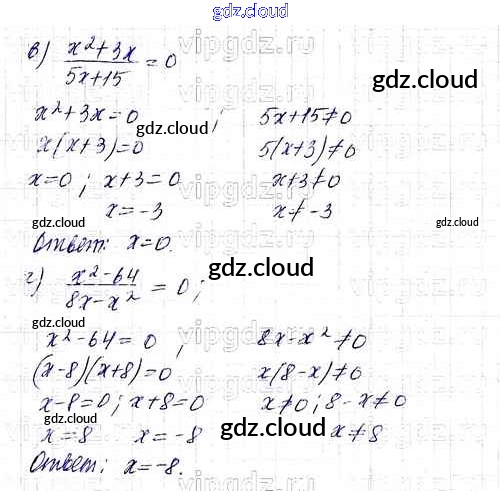 gdz.cloud
в) (x²+3x)/(5x+15) = 0
gdz.cloud
x²+3x=0 ; 5x+15≠0
gdz.cloud
x(x+3)=0 5(x+3)≠0
x=0 ; x+3=0 x+3≠0
x=-3 x≠-3
gdz.cloud gdz.cloud
Ответ: x=0.
gdz.cloud
г) (x²-64)/(8x-x²) = 0 ;
gdz.cloud
x²-64=0 ; 8x-x²≠0
(x-8)(x+8)=0 x(8-x)≠0
x-8=0 ; x+8=0 x≠0 ; 8-x≠0
gdz.cloud gdz.cloud
x=8 x=-8 x≠8
Ответ: x=-8.